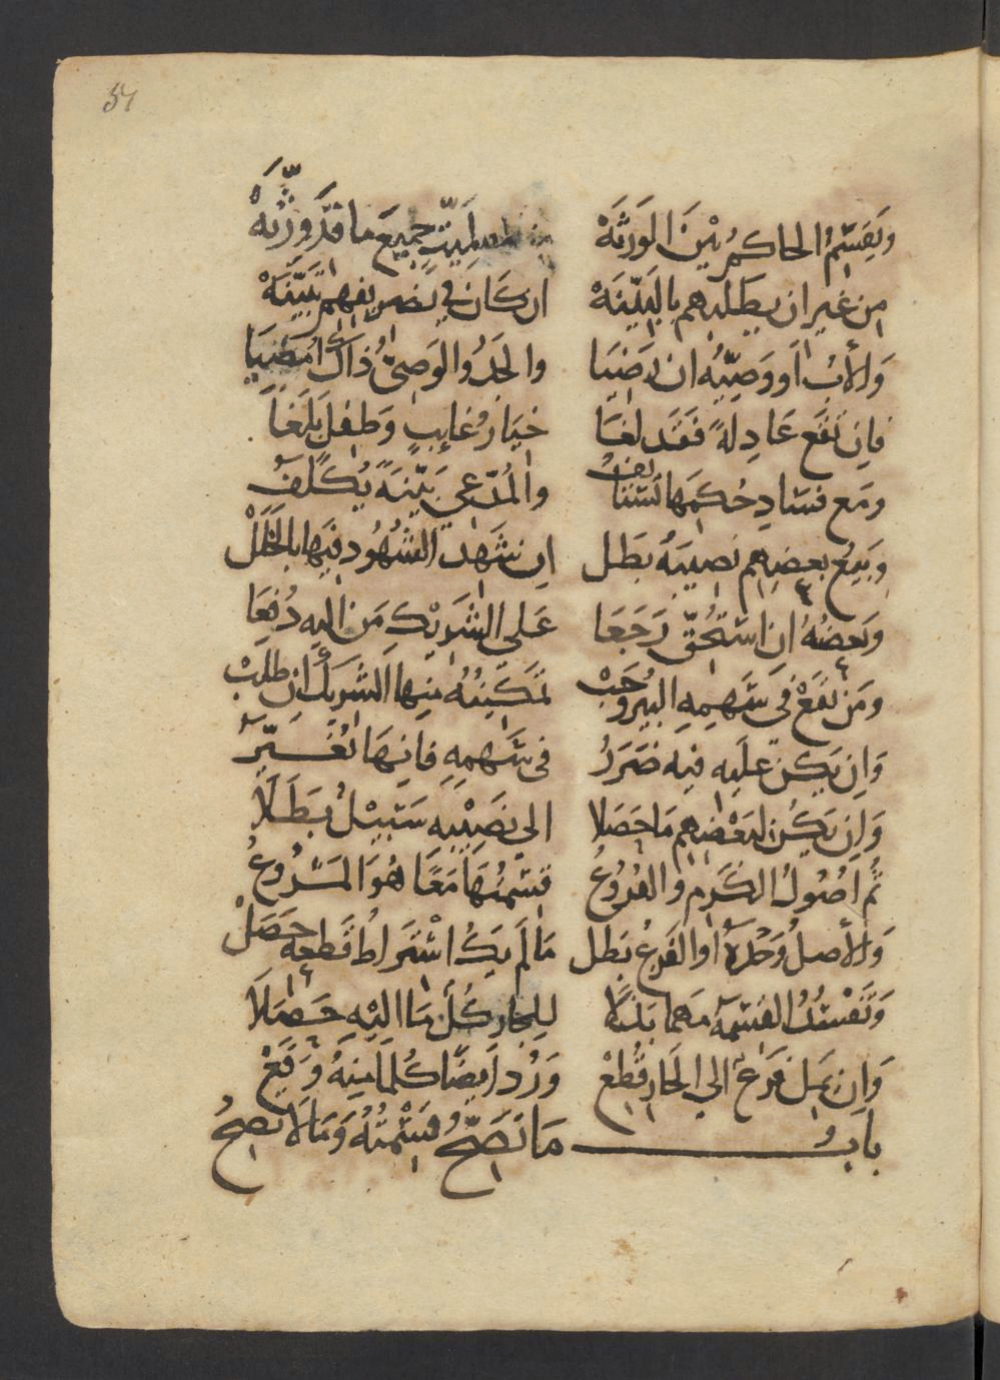 54
وَيَقسِّمُ الحاكمُ بيْنَ الوَرثَهْ لميّتٍ جميعَ ما قدْ وَرّثهْ
من غير ان يطلبهم بالبَيّنَهْ ان كَان في يضر بَيِّنَهْ
وَالأبُ او وَصِيّهُ ان رَضيَا والجَدُ والوَصىّ ذاك امضيَا
فاِن تقَع عَادِلةً فقَد لغَا خيَارُ غايبٍ وَطِفلٍ بَلَغا
ومَع فسَادِ حُكمهَا تستانفُ والمُدّعي بَيّنَةً يُكلّفُ
وَبَيعُ بعضِهم نصيبَهُ بَطل اِن شَهدَ الشهُود فيها بالخَلَلْ
وَبَعضهُ ان استُحقّ رَجَعَا عَلى الشرَيكِ مَن اليهِ دُفِعَا
ومَن تقَعْ في سَهمِهِ البيرُ وَجَبْ تمكينُهُ مِنها الشريكَ ان طلبْ
وَاِن يَكن عليهِ فيه ضَرَرُ في سَهمهِ فاِنهَا تُغَيّرُ
وَاِن يَكُن لبَعْضِهم مَا حَصَلا الي نصَيْبِهِ سَبيْلٌ بَطَلَا
ثم اصُولُ الكَرم والفرُوعُ قسْمتُهَا مَعًا هُوَ المَشرُوعُ
وَالأصلُ وَحْدَهُ او الفَرعُ بَطل مَا لَم يَكُ اشْتراطُ قَطعِه حَصَلْ
وَتَفْسُدُ القسْمَة مَهما بَدّلَا لِلجَارِ كُلٌّ مَا اليْهِ حَصَلَا
وَاِن يَمل فَرعٌ الي الجَارِ قُطِعْ وَرُد ايضًا كُلمَا مِنهُ وَقَعْ
بابُ مَا تصَحّ قسْمتُهُ وَمَا لا تصِحُ